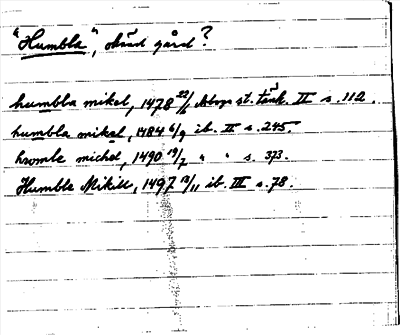 "Humbla", okänd gård?
humbla mikel, 1478 22/6 Arboga st. tänk. II s. 112.
humbla mikel, 1484 6/9 ib. II s. 245.
hromle michel, 1490 19/7 " " s. 373.
Humble Mikill, 1497 13/11 ib. III s. 78.